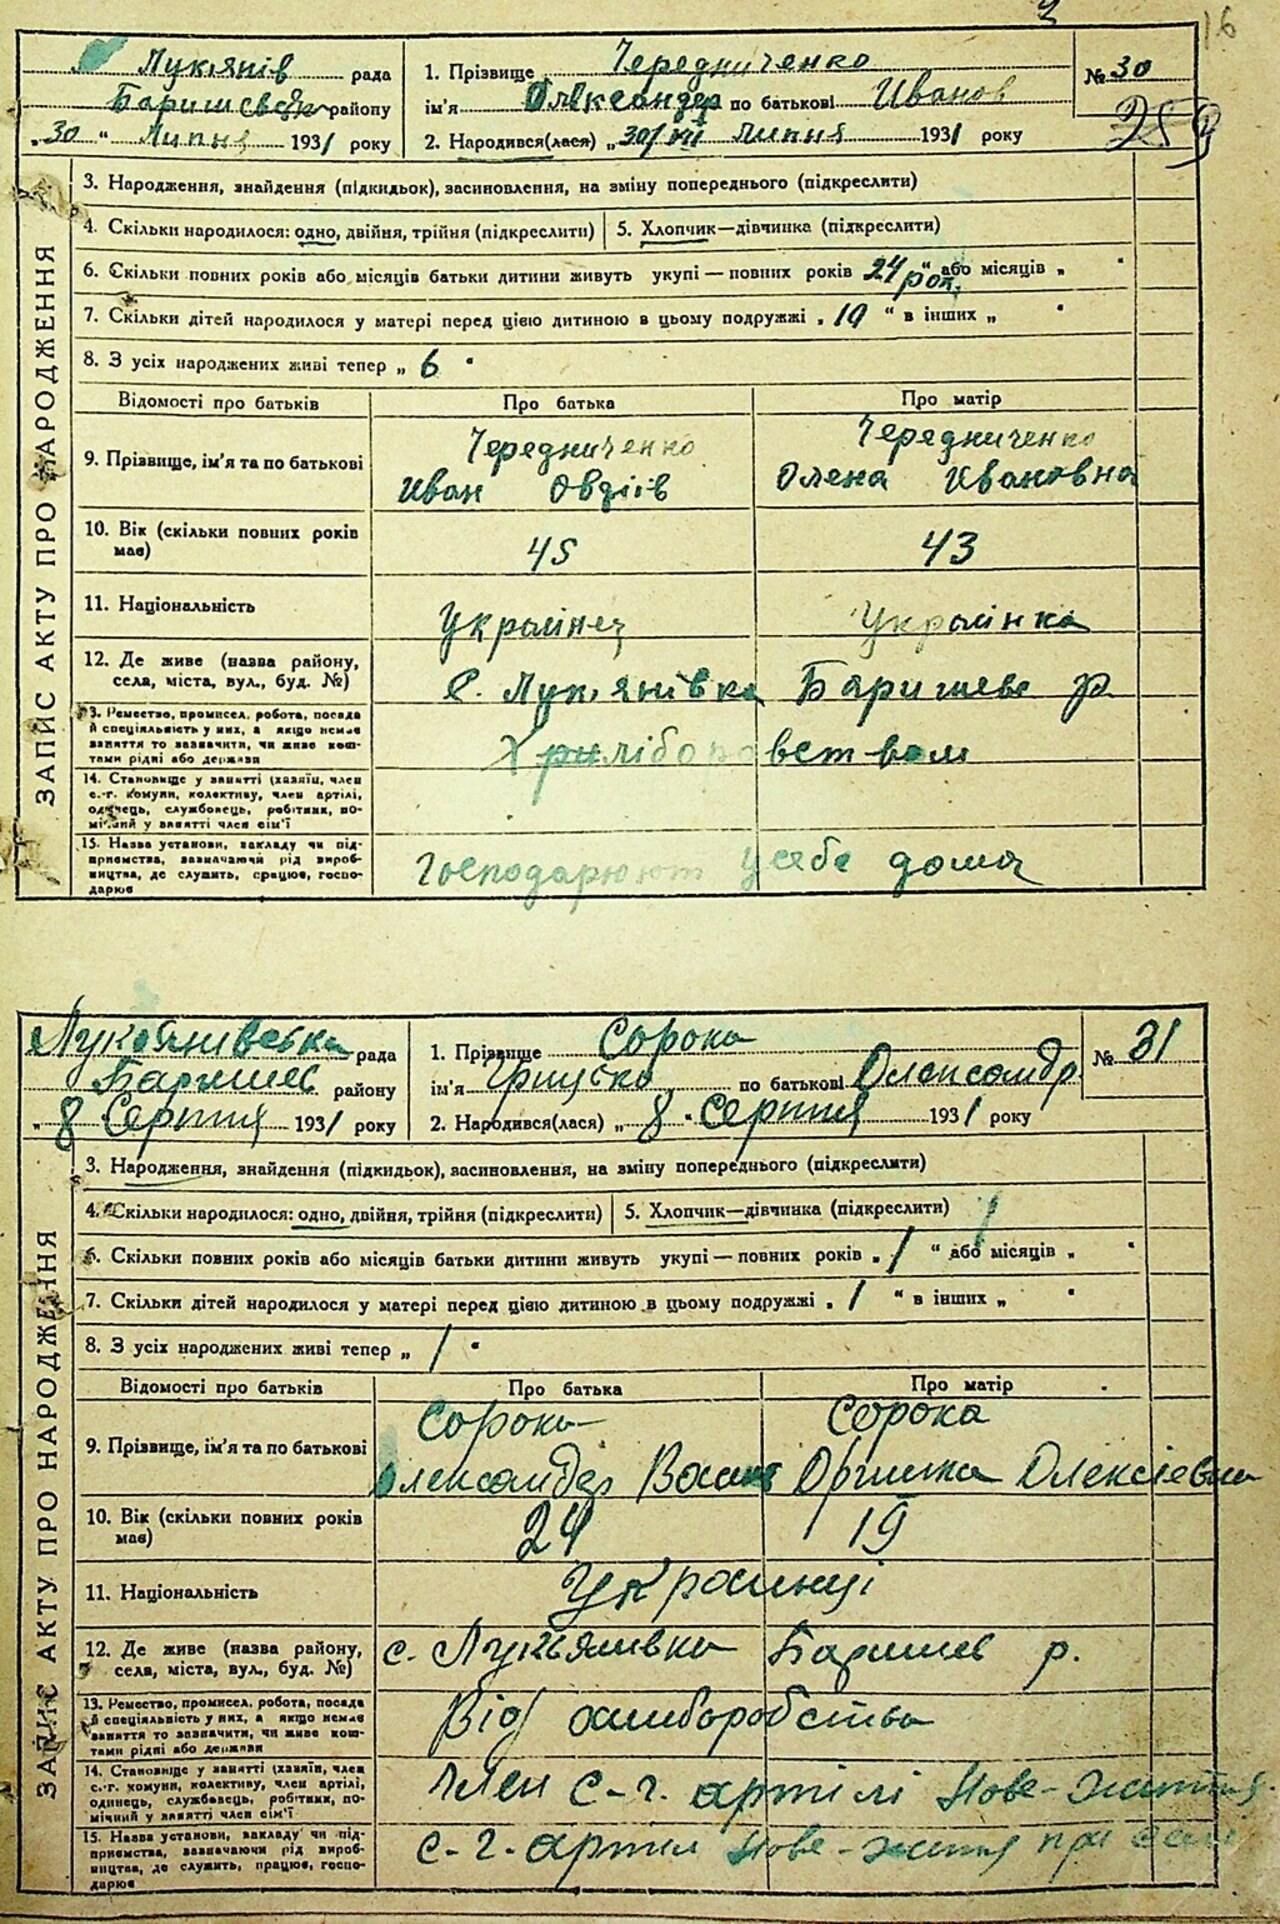 16
Лук'янів рада
Баришевськ району
„30“ Липня 1931 року
1. Прізвище Чередниченко
ім'я Олександер по батькові Иванов
2. Народився(лася) „30/VII липня 1931 року
№ 30
ЗАПИС АКТУ ПРО НАРОДЖЕННЯ
3. Народження, знайдення (підкидьок), засиновлення, на зміну попереднього (підкреслити)
4. Скільки народилося: одно, двійня, трійня (підкреслити) 5. Хлопчик—дівчинка (підкреслити)
6. Скільки повних років або місяців батьки дитини живуть укупі — повних років 24 рок. “ або місяців „ “
7. Скільки дітей народилося у матері перед цією дитиною в цьому подружжі „ 10 “ в інших „ “
8. З усіх народжених живі тепер „ 6 “
Відомості про батьків Про батька Про матір
9. Прізвище, ім'я та по батькові
Чередниченко Чередниченко
Иван Овдіїв Олена Ивановна
10. Вік (скільки повних років має) 45 43
11. Національність Українец Українка
12. Де живе (назва району, села, міста, вул., буд. №) с. Лук'янівка Баришеве р
13. Ремество, промисел, робота, посада
й спеціяльність у них, а якщо немає
заняття то зазначити, чи живе кош-
тами рідні або держави
14. Становище у занятті (хазяїн, член
с.-г. комуни, колективу, член артілі,
одинець, службовець, робітник, по-
мічний у занятті член сім'ї
15. Назва установи, закладу чи під-
приємства, зазначаючи рід вироб-
ництва, де служить, працює, госпо-
дарює
Господарюют у себе дома
рада
Баришев району
„8 Серпня 1931 року
1. Прізвище Сорока
ім'я Грицько по батькові Олександр.
2. Народився(лася) „8“ Серпня 1931 року
№ 31
ЗАПИС АКТУ ПРО НАРОДЖЕННЯ
3. Народження, знайдення (підкидьок), засиновлення, на зміну попереднього (підкреслити)
4. Скільки народилося: одно, двійня, трійня (підкреслити) 5. Хлопчик—дівчинка (підкреслити)
6. Скільки повних років або місяців батьки дитини живуть укупі — повних років „ 1 “ або місяців „ “
7. Скільки дітей народилося у матері перед цією дитиною в цьому подружжі „ 1 “ в інших „ “
8. З усіх народжених живі тепер „ 1 “
Відомості про батьків Про батька Про матір
9. Прізвище, ім'я та по батькові
Сорока Сорока
Олександер Олексіевна
10. Вік (скільки повних років має) 24 19
11. Національність Украинці
12. Де живе (назва району, села, міста, вул., буд. №) с. Лукъянивка Баришев р.
13. Ремество, промисел, робота, посада
й спеціяльність у них, а якщо немає
заняття то зазначити, чи живе кош-
тами рідні або держави
Від
14. Становище у занятті (хазяїн, член
с.-г. комуни, колективу, член артілі,
одинець, службовець, робітник, по-
мічний у занятті член сім'ї
Член с-г. артілі Нове-життя
15. Назва установи, закладу чи під-
приємства, зазначаючи рід вироб-
ництва, де служить, працює, госпо-
дарює
с-г. артил Нове-життя при